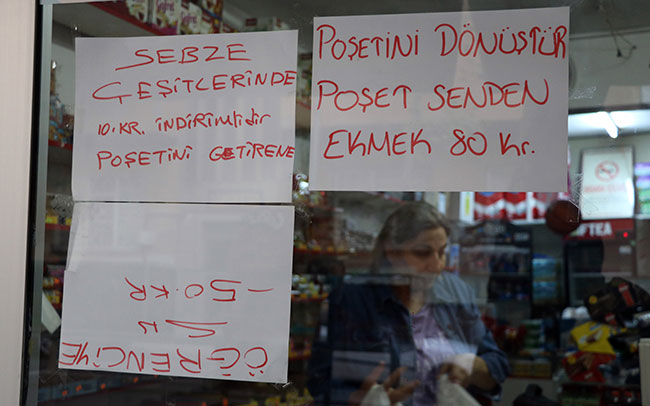 SEBZE
ÇEŞİTLERİNDE
10.KR. İNDİRİMLİDİR
POŞETİNİ GETİRENE
POŞETİNİ DÖNÜŞTÜR
POŞET SENDEN
EKMEK 80 Kr.
ÖĞRENCİYE
SU
-50.KR